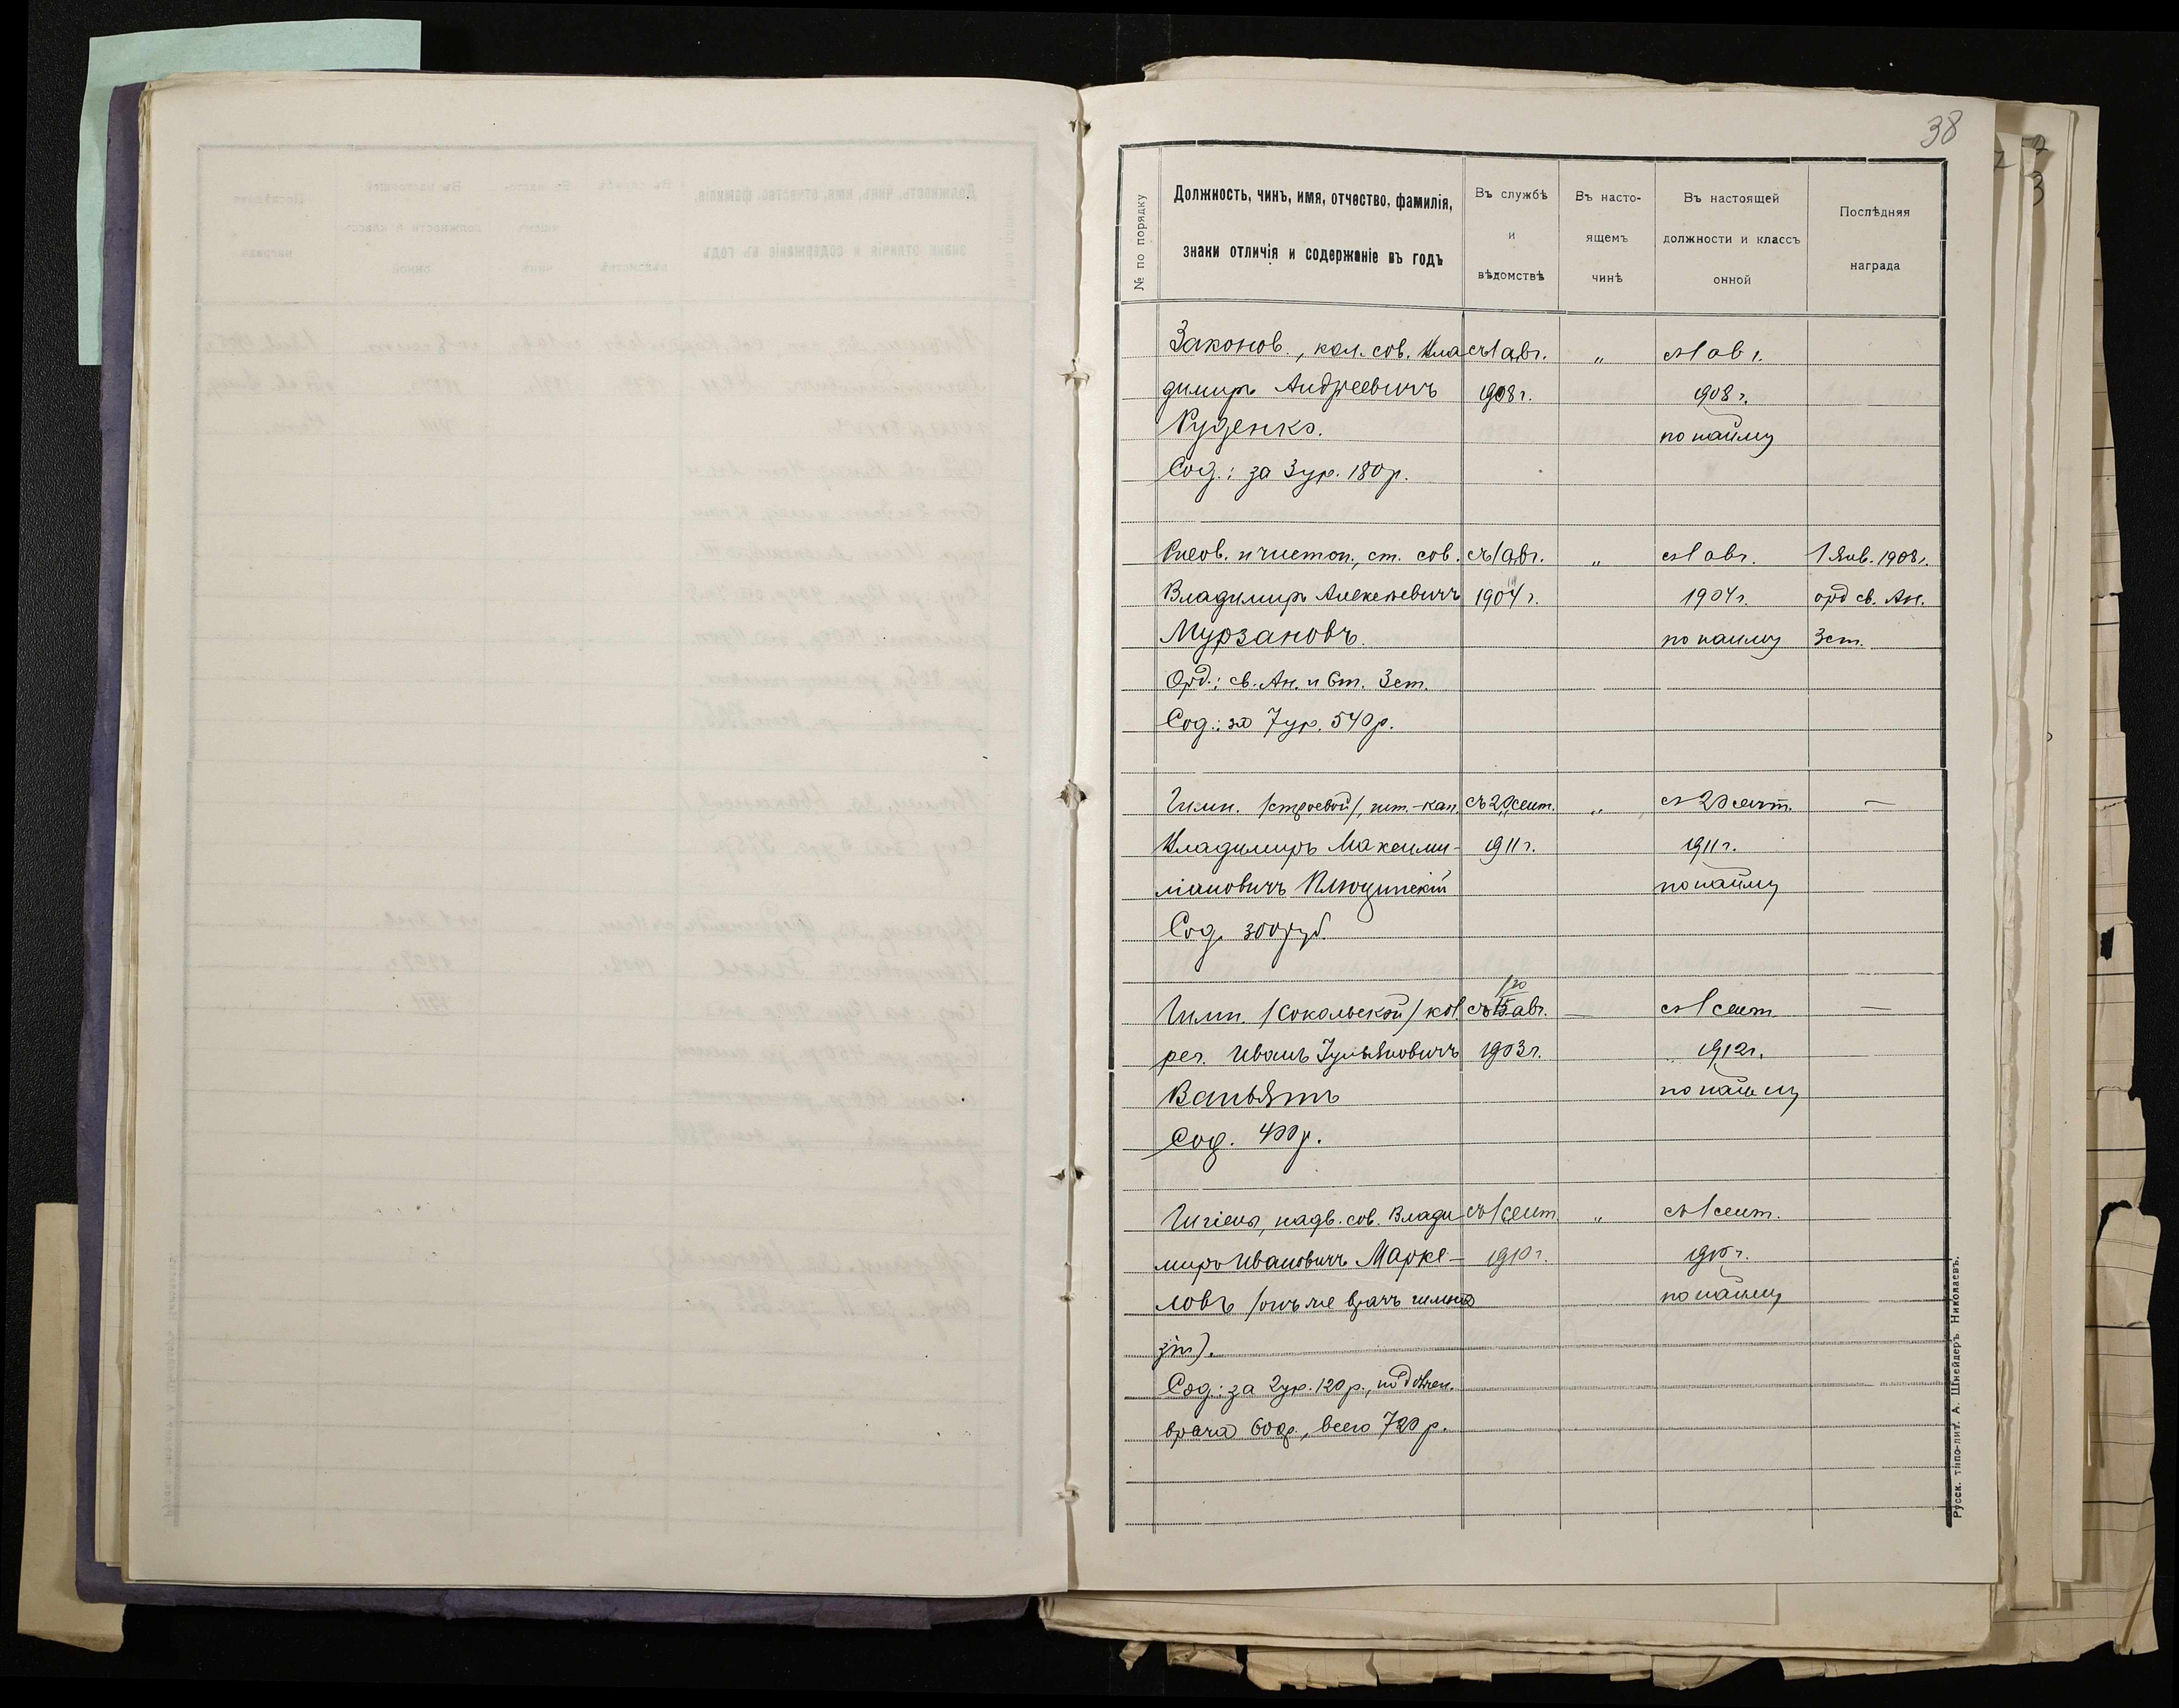 38
№ по порядку
Должность, чинъ, имя, отчество, фамилія,
знаки отличія и содержаніе въ годъ
Въ службѣ
и
вѣдомствѣ
Въ насто-
ящемъ
чинѣ
Въ настоящей
должности и классъ
онной
Послѣдняя
награда
Законов., кол. сов. Вла съ 1 авг. „ съ 1 авг.
димиръ Андреевичъ 1908 г. 1908 г.
Руденко. по найму
Сод.: за 3 ур. 180 р.
Рисов. и чистоп., ст. сов. съ 1 авг. „ съ 1 авг. 1 Янв. 1908 г.
Владимиръ Алексѣевичъ 1904 г. 1904 г. орд св. Ан.
Мурзановъ. по найму 3 ст.
Орд.: св. Ан. и Ст. 3 ст.
Сод.: за 7 ур. 540 р.
Гимн. /строевой/, шт.-кап. съ 20 сент. „ съ 20 сент. —
Владимиръ Максими- 1911 г. 1911 г.
ліановичъ по найму
Сод. 300 руб.
Гимн. /Сокольской/ кол. авг. — съ 1 сент. —
рег. Иванъ 1903 г. 1912 г.
по найму
Сод. 400 р.
Гигіены, надв. сов. Влади съ 1 сент. „ съ 1 сент.
миръ Ивановичъ Марке- 1910 г. 1910 г.
ловъ /онъ же врачъ гимна по найму
зіи).
Сод.: за 2 ур. 120 р., по должн.
врача 600 р., всего 720 р.
Русск. типо-лит. А. Шнейдеръ Николаевъ.